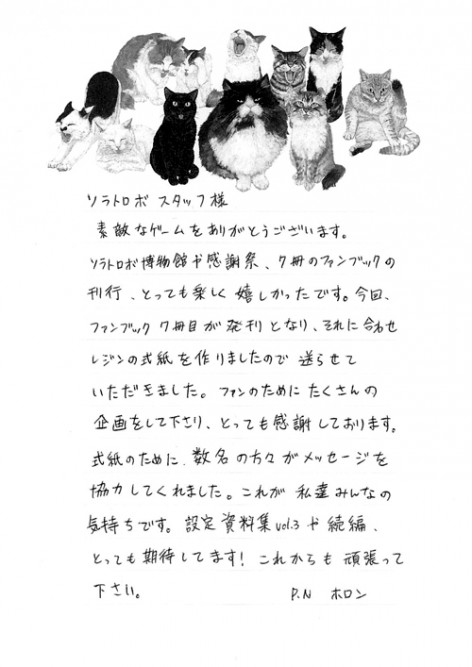 ソラトロボ スタッフ様
素敵なゲームをありがとうございます。
ソラトロボ博物館や感謝祭、7冊のファンブックの
刊行、とっても楽しく嬉しかったです。今回、
ファンブック 7冊目が発刊となり、それに合わせ
レジンの式紙を作りましたので 送らせて
いただきました。ファンのために たくさんの
企画をして下さり、とっても感謝しております。
式紙のために、数名の方々がメッセージを
協力してくれました。これが 私達みんなの
気持ちです。設定資料集vol.3や続編、
とっても期待してます! これからも 頑張って
下さい。 P.N ホロン